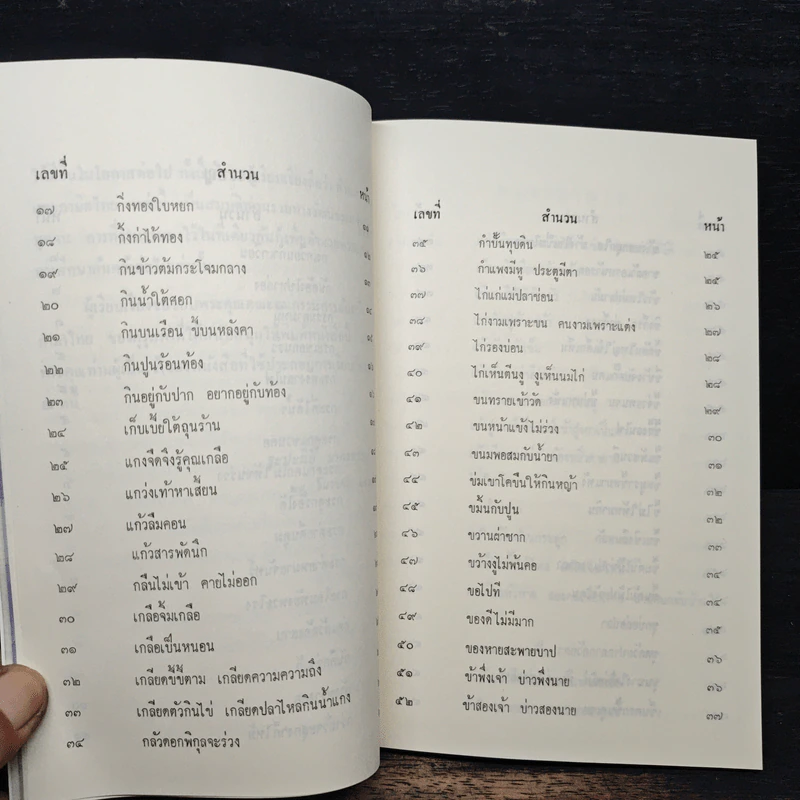 เลขที่ สำนวน หน้า
๑๗ กิ่งทองใบหยก
๑๘ กิ้งก่าได้ทอง
๑๙ กินข้าวต้มกระโจมกลาง
๒๐ กินน้ำใต้ศอก
๒๑ กินบนเรือน ขี้บนหลังคา
๒๒ กินปูนร้อนท้อง
๒๓ กินอยู่กับปาก อยากอยู่กับท้อง
๒๔ เก็บเบี้ยใต้ถุนร้าน
๒๕ แกงจืดจึงรู้คุณเกลือ
๒๖ แกว่งเท้าหาเสี้ยน
๒๗ แก้วลืมคอน
๒๘ แก้วสารพัดนึก
๒๙ กลืนไม่เข้า คายไม่ออก
๓๐ เกลือจิ้มเกลือ
๓๑ เกลือเป็นหนอน
๓๒ เกลียดขี้ขี้ตาม เกลียดความความถึง
๓๓ เกลียดตัวกินไข่ เกลียดปลาไหลกินน้ำแกง
๓๔ กลัวดอกพิกุลจะร่วง
เลขที่ สำนวน หน้า
๓๕ กำปั้นทุบดิน ๒๕
๓๖ กำแพงมีหู ประตูมีตา ๒๕
๓๗ ไก่แก่แม่ปลาช่อน ๒๖
๓๘ ไก่งามเพราะขน คนงามเพราะแต่ง ๒๗
๓๙ ไก่รองบ่อน ๒๘
๔๐ ไก่เห็นตีนงู งูเห็นนมไก่ ๒๘
๔๑ ขนทรายเข้าวัด ๒๙
๔๒ ขนหน้าแข้งไม่ร่วง ๓๐
๔๓ ขนมพอสมกับน้ำยา ๓๑
๔๔ ข่มเขาโคขืนให้กินหญ้า ๓๒
๔๕ ขมิ้นกับปูน ๓๒
๔๖ ขวานผ่าซาก ๓๓
๔๗ ขว้างงูไม่พ้นคอ ๓๔
๔๘ ขอไปที ๓๔
๔๙ ของดีไม่มีมาก ๓๕
๕๐ ของหายสะพายบาป ๓๖
๕๑ ข้าพึ่งเจ้า บ่าวพึ่งนาย ๓๖
๕๒ ข้าสองเจ้า บ่าวสองนาย ๓๗